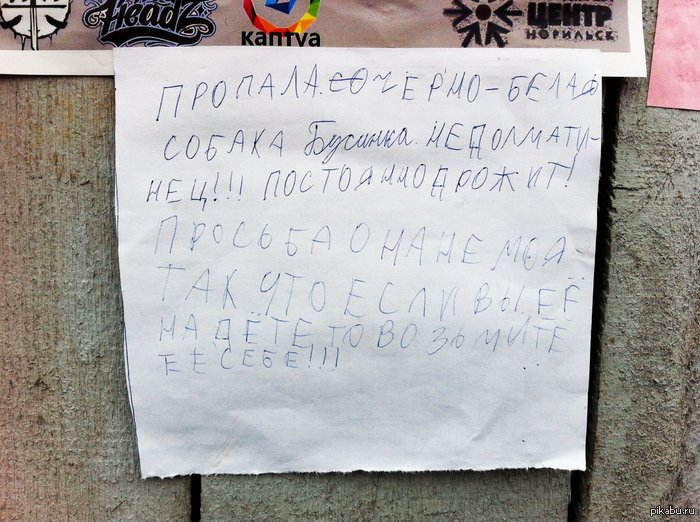 HeadZ
каптуа
ЦЕНТР
НОРИЛЬСК
ПРОПАЛА ЧЕРНО-БЕЛАЯ
СОБАКА Бусинка. НЕ ДОЛМАТИ-
НЕЦ!!! ПОСТОЯННО ДРОЖИТ!
ПРОСЬБА ОНА НЕ МОЯ
ТАК ЧТО ЕСЛИ ВЫ ЕЁ
НАДЁТЕ ТО ВОЗЬМИТЕ
ЕЁ СЕБЕ!!!
pikabu.ru